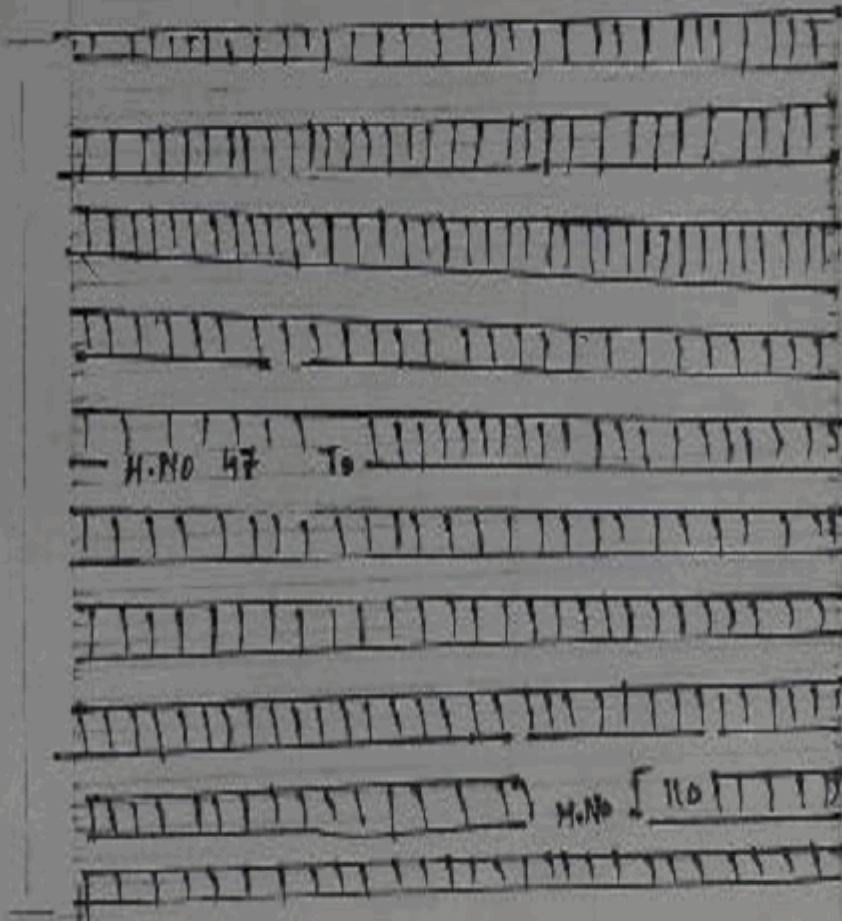 H.NO 47 To
H.NO 110